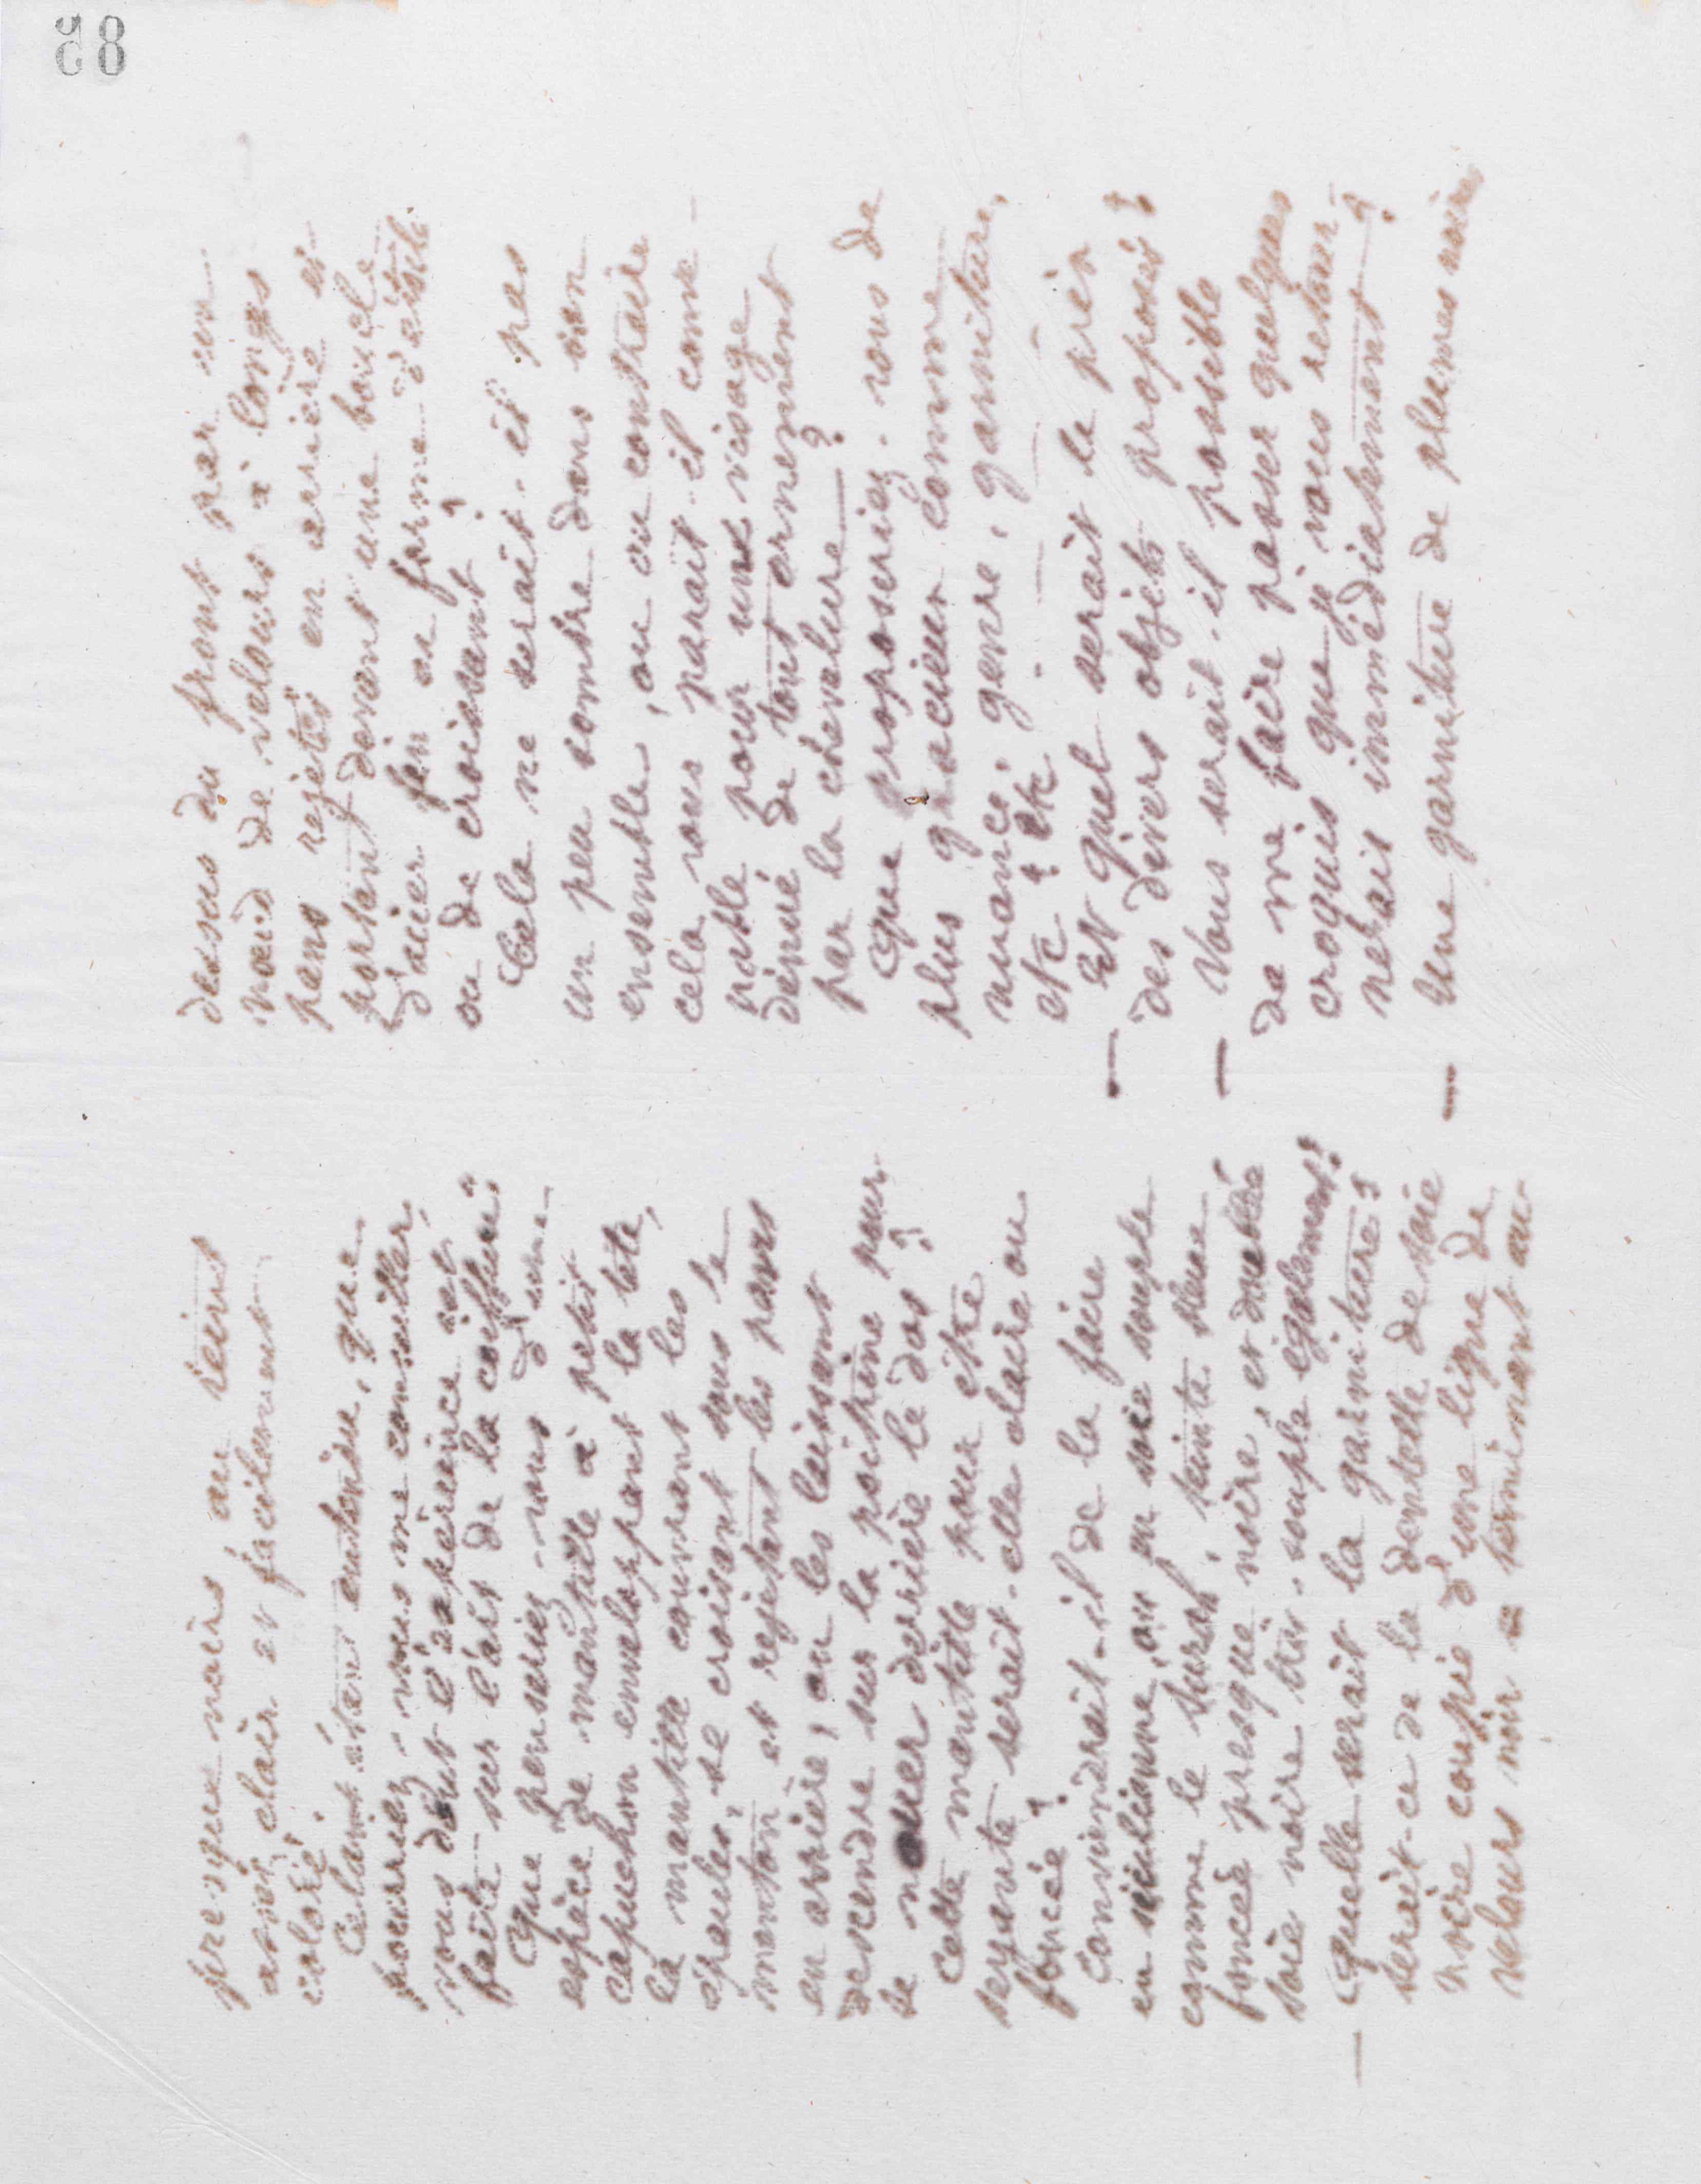 58
presque noirs au teint
assez clair et facilement
coloré.
Cela étant entendu, que
pourriez-vous me conseiller,
vous dont l'expérience est
faite sur l'air de la coiffure?
Que penseriez-vous d'une
espèce de mantille à petit
capuchon enveloppant la tête,
la mantille couvrant les
épaules, se croisant sous le
menton et rejetant les pans
en arrière, ou les laissant
descendre sur la poitrine pour
se nouer derrière le dos?
Cette mantille pour être
seyante serait-elle claire ou
foncée?
Conviendrait-il de la faire
en sicilienne, ou en soie souple
comme le surah, teinte bleue
foncée presque noire, et doublée
soie noire très-souple également?
— Quelle serait la garniture?
serait-ce de la dentelle de soie
noire coupée d'une ligne de
velours noir se terminant au
dessus du front par un
nœud de velours à longs
pans rejetés en arrière et
portant devant une boucle
d'acier fin en forme d'étoile
ou de croissant?
Cela ne serait-il pas
un peu sombre dans son
ensemble, ou au contraire
cela vous paraît-il conve-
nable pour un visage
dénué de tout ornement
par la chevelure?
Que proposeriez-vous de
plus gracieux comme
nuance, genre, garniture,
etc. etc.
— Et quel serait le prix
des divers objets proposés?
— Vous serait-il possible
de me faire passer quelques
croquis que je vous retour-
nerais immédiatement?
— Une garniture de plumes noires